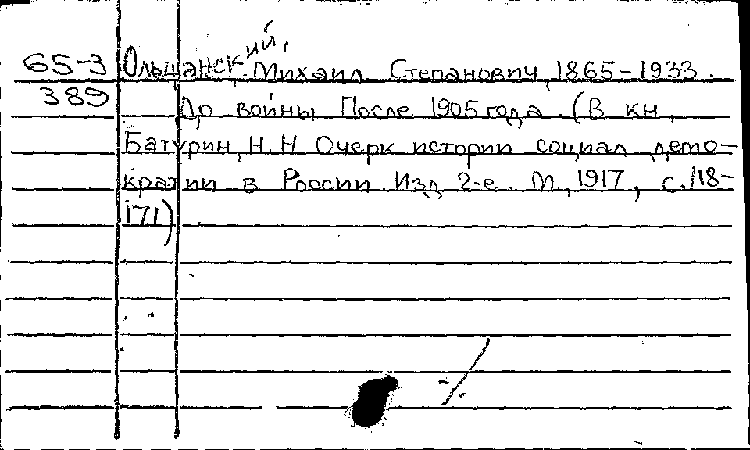 65-3 Ольшанский, Михаил Степанович, 1865-1933.
389 До войны После 1905 года. (В кн.
Батурин, Н. Н Очерк истории социал демо-
кратии в России Изд 2-е. М, 1917, с. 118-
171)